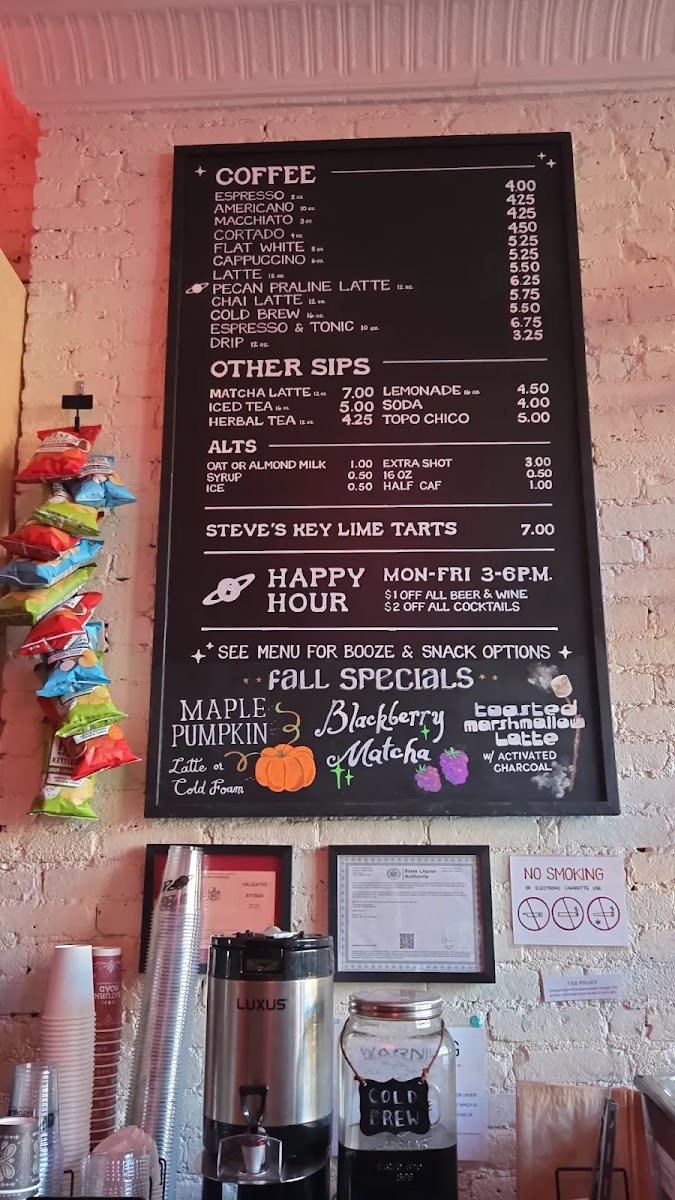 COFFEE
ESPRESSO 2 oz. 4.00
AMERICANO 10 oz. 4.25
MACCHIATO 3 oz. 4.25
CORTADO 4 oz. 4.50
FLAT WHITE 8 oz. 5.25
CAPPUCCINO 6 oz. 5.25
LATTE 12 oz. 5.50
PECAN PRALINE LATTE 12 oz. 6.25
CHAI LATTE 12 oz. 5.75
COLD BREW 16 oz. 5.50
ESPRESSO & TONIC 10 oz. 6.75
DRIP 12 oz. 3.25
OTHER SIPS
MATCHA LATTE 12 oz. 7.00 LEMONADE 16 oz. 4.50
ICED TEA 16 oz. 5.00 SODA 4.00
HERBAL TEA 12 oz. 4.25 TOPO CHICO 5.00
ALTS
OAT OR ALMOND MILK 1.00 EXTRA SHOT 3.00
SYRUP 0.50 16 OZ 0.50
ICE 0.50 HALF CAF 1.00
STEVE'S KEY LIME TARTS 7.00
HAPPY HOUR
MON-FRI 3-6P.M.
$1 OFF ALL BEER & WINE
$2 OFF ALL COCKTAILS
SEE MENU FOR BOOZE & SNACK OPTIONS
FALL SPECIALS
MAPLE
PUMPKIN
Latte or
Cold Foam
Blackberry
Matcha
toasted
marshmallow
Latte
W/ ACTIVATED
CHARCOAL
KETTLE
VALIDATED
State Liquor
Authority
NO SMOKING
OR ELECTRONIC CIGARETTE USE
TAB POLICY
SATURN
ROAD
LUXUS
WARNING
COLD
BREW